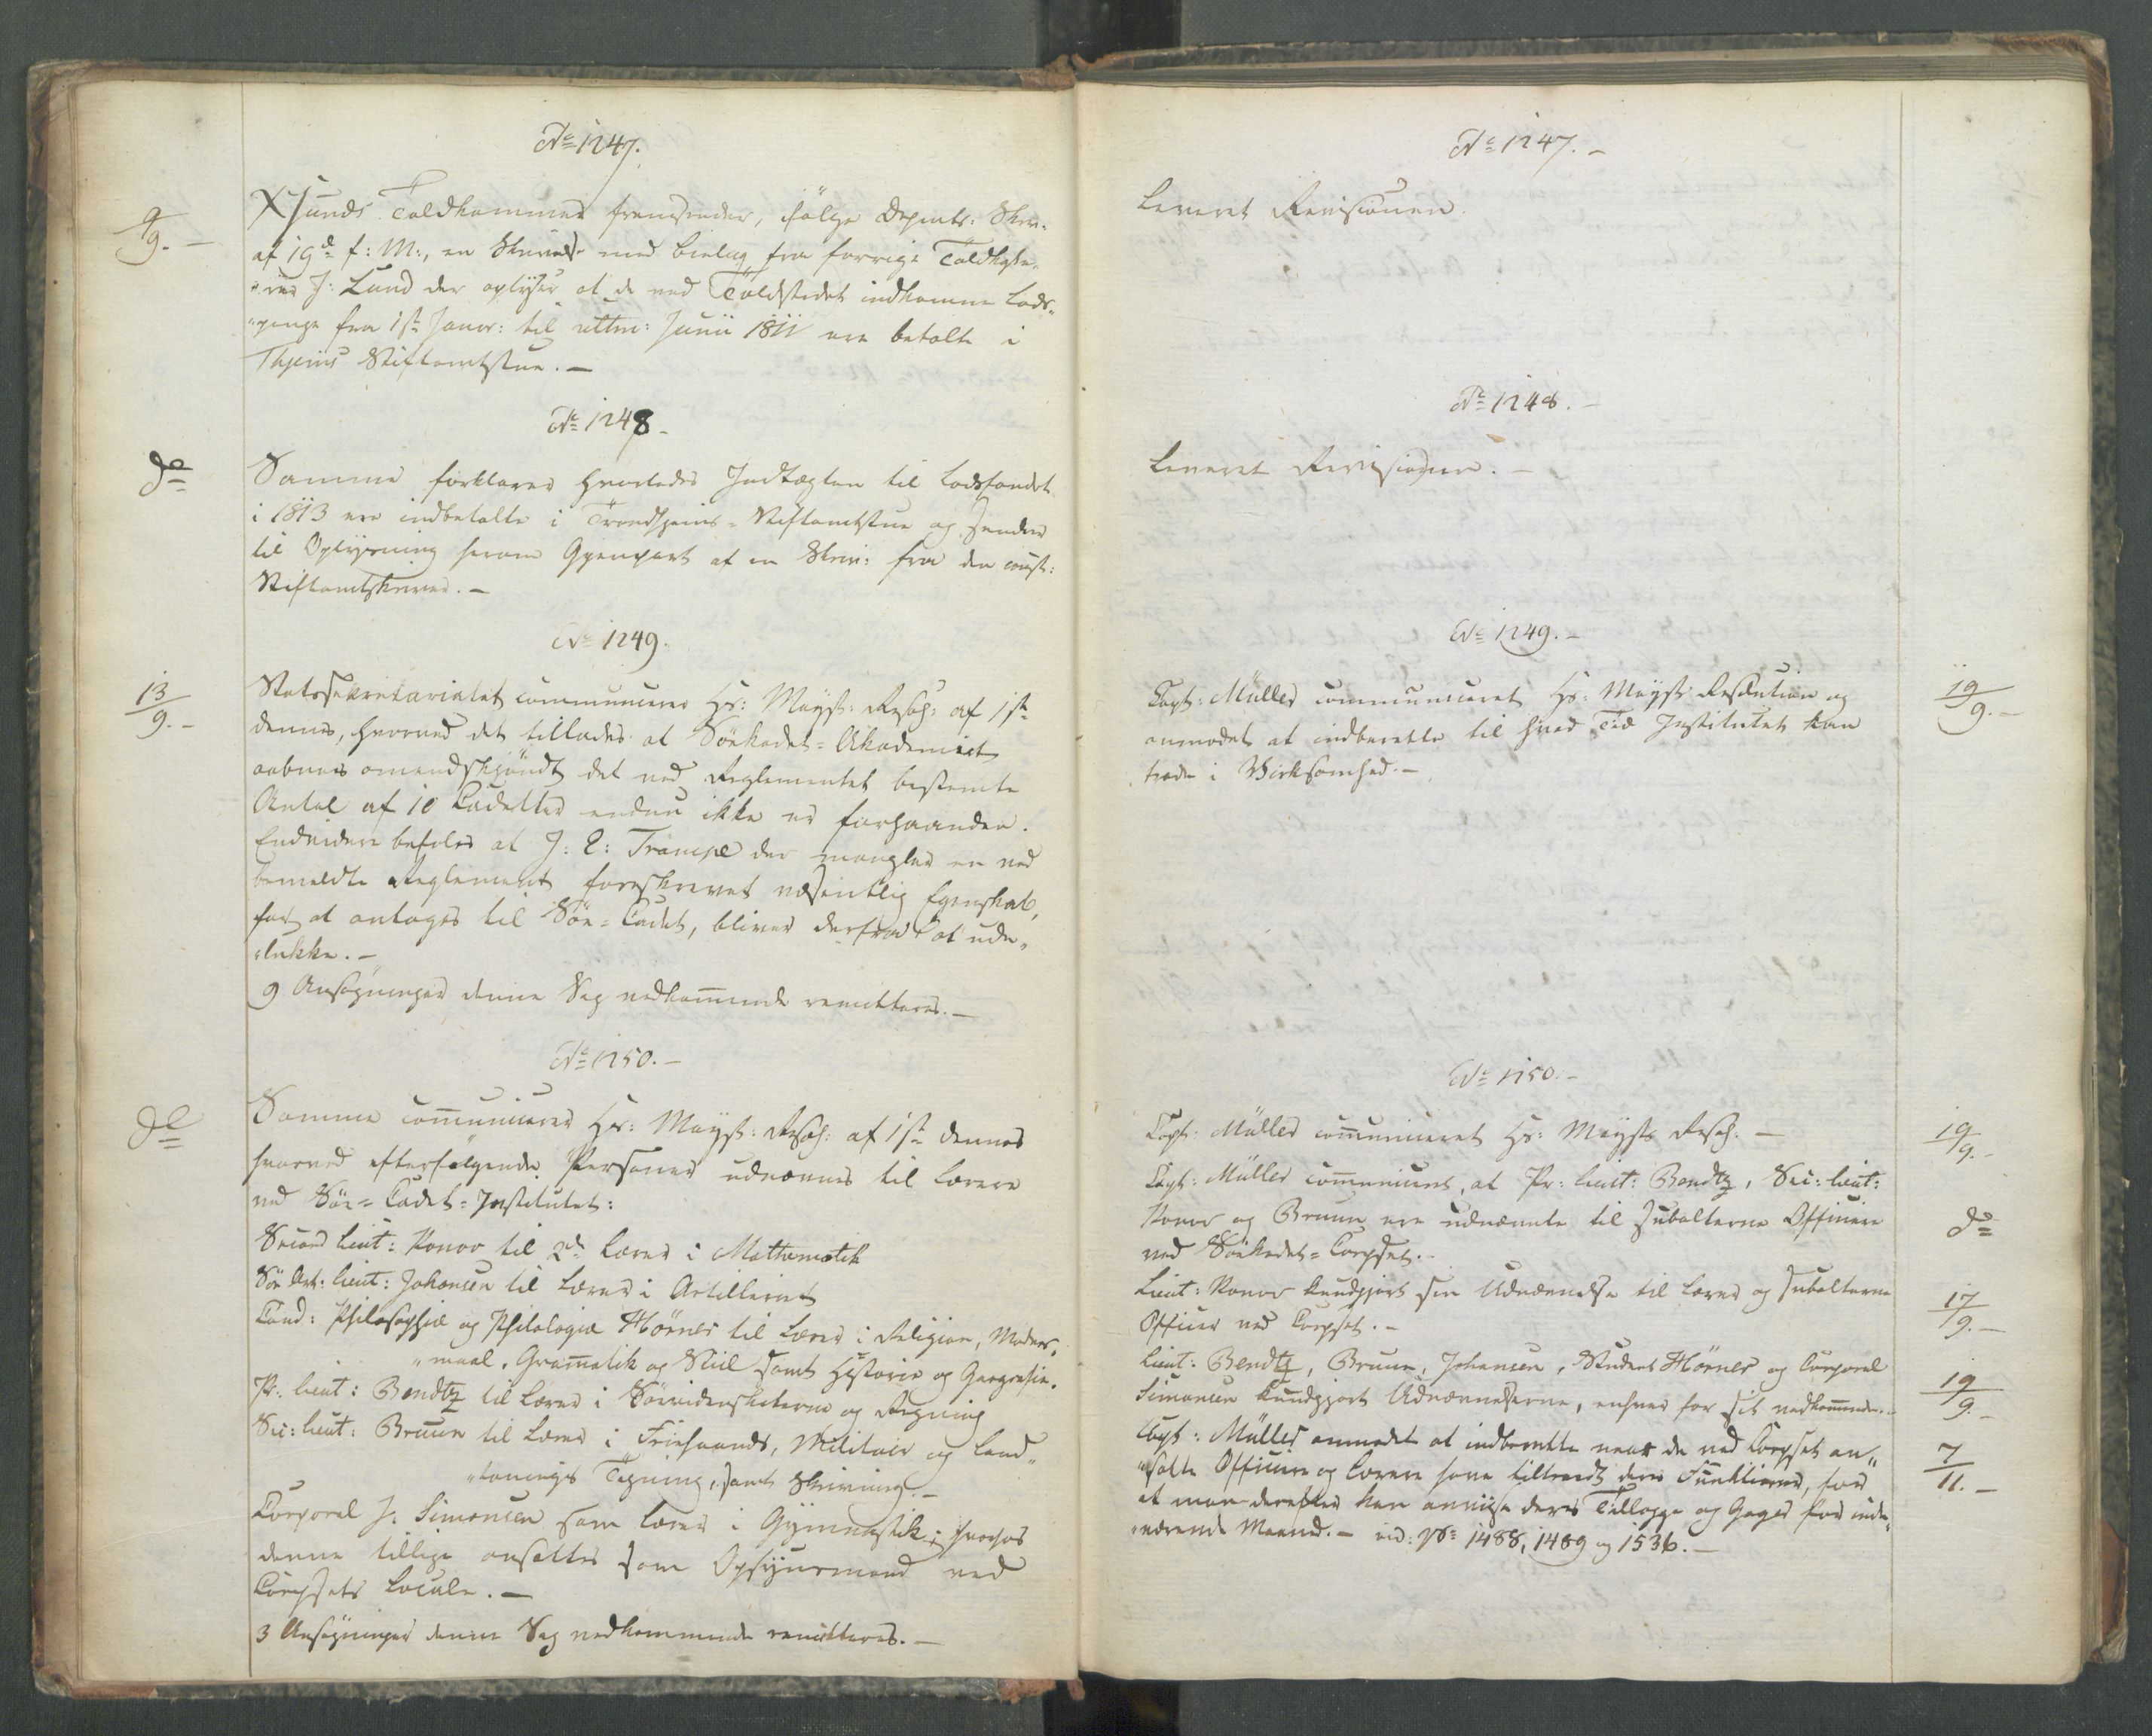 No 1247.
9/9. -
Xsunds Toldkammer fremsender, følge Depmts: Skr:
af 19de f: M:, en Skrivelse med bielag fra forrige Toldkasse-
"rer J: Lund der oplyser at de ved Toldstedet indkomne Lods-
"penge fra 1ste Januar: til ultm: Junii 1811 ere betalte i
Thjems Stiftamtstue. -
No 1248 -
do
Samme forklarer hvorledes Indtægten til Lodsfondet
i 1813 ere indbetalte i Trondhjems - Stiftamtstue og sender
til Oplysning herom Gjenpart af en Skriv: fra den const:
Stiftamtskriver. -
No 1249.
13/9. -
Statssekretariatet communicerer Hs: Mayst: Resol: af 1ste
dennes, hvorved det tillades at Søekadet-Akademiet
aabnes omendskjøndt det ved Reglementet bestemte
Antal af 10 Cadetter endnu ikke er forhaanden.
Endvidere befales at J: E: Trampe der mangler en ved
bemeldte Reglement foreskrevet væsentlig Egenskab,
for at antages til Søe-Cadet, bliver derfra at ude-
"lukke. -
9 Ansøgninger denne Sag vedkommende remitteres. -
No 1250. -
do
Samme communicerer Hs: Mayst: Resol: af 1ste dennes
hvorved efterfølgende Personer udnævnes til Lærere
ved Søe-Cadet-Institutet:
Second Lieut: Konow til 2den Lærer i Mathematik
Søe Art: Lieut: Johansen til Lærer i Artilleriet
Cand: Philosophiæ og Philologiæ Hörner til Lærer i Religion, Moders-
"maal, Grammatik og Stiil samt Historie og Geografie.
Pr: Lieut: Bendtz til Lærer i Søevidenskaberne og Regning
Sec: Lieut: Bruun til Lærer i Friehaands, Militair og Land-
"tonings Tegning, samt Skrivning. -
Corporal J: Simonsen som Lærer i Gymnastik; hvorhos
denne tillige ansættes som Opsynsmand ved
Corpsets Locale. -
3 Ansøgninger denne Sag vedkommende remitteres. -
No 1247. -
Leveret Revisionen.
No 1248. -
Leveret Revisionen. -
No 1249. -
19/9. -
Capt: Müller communiceret Hs: Mayst: Resolution og
anmodet at indberette til hvad Tid Institutet kan
træde i Virksomhed. -
No 1250. -
19/9. -
Capt: Müller communiceret Hs: Maysts Resol: -
Capt: Müller communiceret, at Pr: Lieut: Bendtz, Sec: Lieut:
do
Konow og Bruun ere udnævnte til Subalterne Officiere
ved Søekadet-Corpset. -
17/9. -
Lieut: Konow kundgjort sin Udnævnelse til Lærer og Subalterne
Officier ved Corpset. -
19/9. -
Lieut: Bendtz, Bruun, Johansen, Student Hörner og Corporal
Simonsen kundgjort Udnævnelserne, enhver for sit vedkommende. -
7/11. -
Capt: Müller anmodet at indberette naar de ved Corpset an-
"satte Officiere og Lærere have tiltraadt deres Funktioner, for
at man derefter kan anviise deres Tillægge og Gager for inde-
"værende Maaned. - vid: No 1488, 1489 og 1536. -